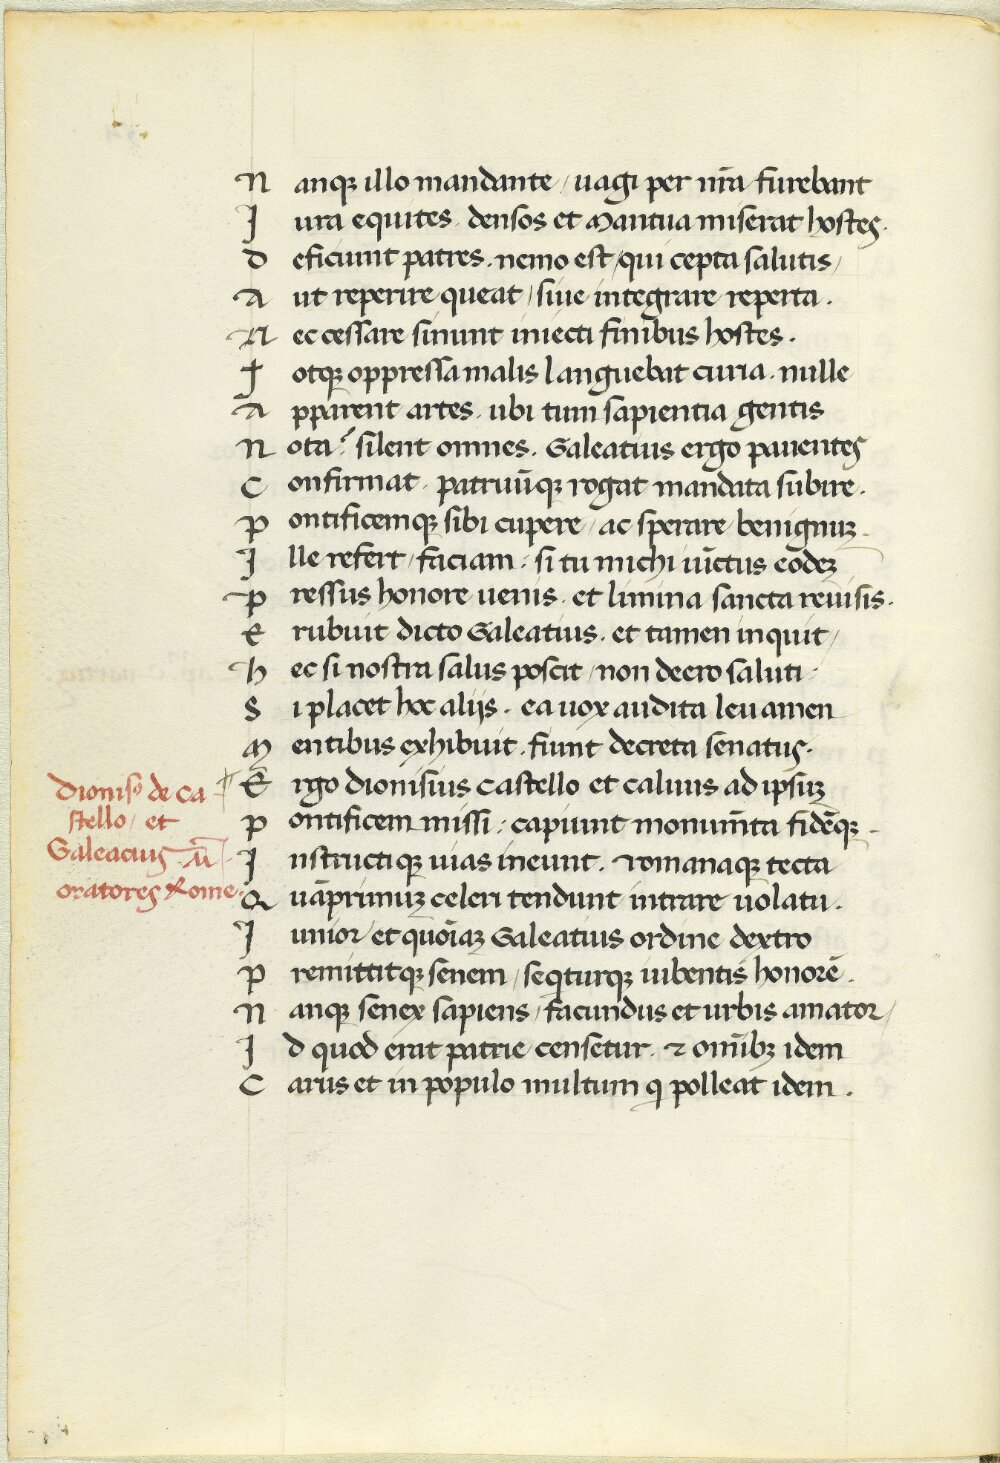 N anqꝫ illo mandante / uagi per nr̃a furebant
J ura equites . densos et Mantua miserat hostes .
D eficiunt patres . nemo est / qui cepta salutis /
A ut reperire queat / siue integrare reperta .
N ec cessare sinunt iniecti finibus hostes .
T otqꝫ oppressa malis languebat curia . nulle
A pparent artes . ubi tum sapientia gentis
N ota ? silent omnes . Galeatius ergo pauentes
C onfirmat . patruũqꝫ rogat mandata subire .
P ontificemqꝫ sibi cupere / ac sperare benignuꝫ .
J lle refert / faciam : si tu michi iũctus eõdeꝫ
P ressus honore uenis . et limina sancta reuisis .
E rubuit dicto Galeatius . et tamen inquit /
H ec si nostra salus poscit / non deero saluti :
S i placet hoc alijs . ea uox audita leuamen
M entibus exhibuit . fiunt decreta senatus .
Dionisꝰ de Ca
stello / et
Galeacius M̃
oratores Rome .
E rgo Dionisius Castello et caluus ad ipsuꝫ
P ontificem missi : capiunt monum̃ta fidẽqꝫ .
J nstructiqꝫ uias ineunt . ⁊ romanaqꝫ tecta
Q uãprimuꝫ celeri tendunt intrare uolatu .
J unior / et quõiaꝫ Galeatius ordine dextro
P remittitqꝫ senem / seqturqꝫ iubentis honorẽ .
N anqꝫ senex sapiens / facundus et urbis amator /
J d quod erat patrie censetur . ⁊ omĩbꝫ idem
C arus et in populo multum ꝙ polleat idem .